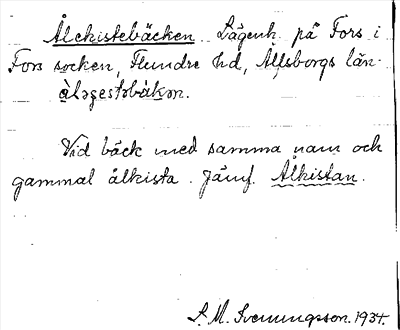 Ålekistebäcken. Lägenh. på Fors i
Fors socken, Flundre hd, Älfsborgs län.
àləɕestəbäkən.
Vid bäck med samma namn och
gammal ålkista. Jämf. Ålkistan.
S. M. Svenungsson. 1934.